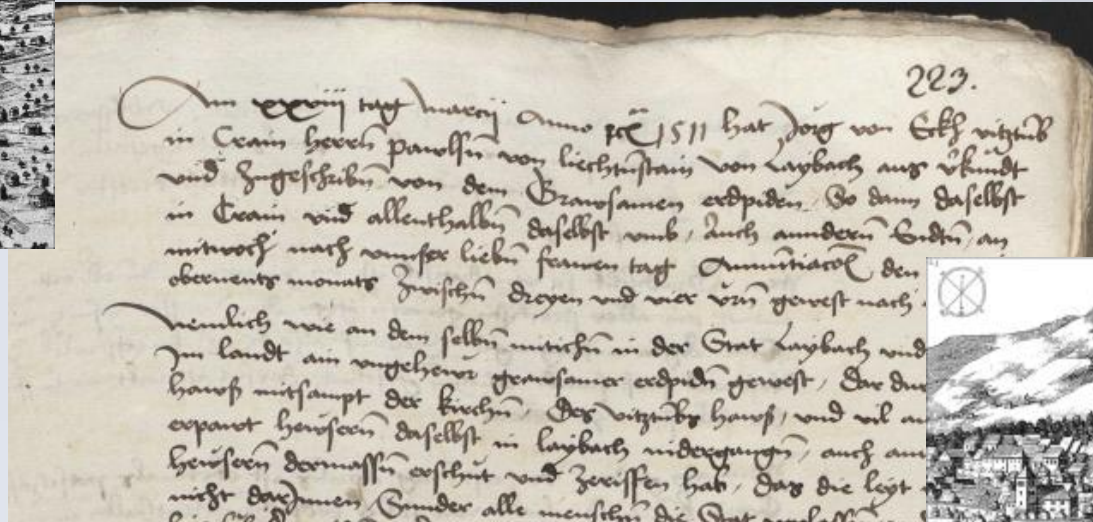 223.
Am xxviij tag Marcij Anno 1511 hat Jörg von Eckh vitztūb
in Crain herrn pawlsn̄ von liechtn̄stain von Laybach aus
vnd zugeschribn̄ von dem Grawsamen erdpiden, So dann daselbst
in Crain vnd allenthalbn̄ daselbst vmb, Auch anndern̄ an
mitwoch nach vnnser liebn̄ frawen tag den
monats zwischn̄ dreyen vnd vier vrn̄ gewest nach
Nemlich wie an dem selbn̄ mitichn̄ in der Stat Laybach vnd
Im landt ain vngehewr grawsamer erdpidn̄ gewest, Dar
hawß mitsampt der kirchn̄, Des vitztūbs hawß, vnd vil
erpawt hewsern̄ daselbst in laybach nidergangn̄, auch
hewsern̄ dermassn̄ erschüt vnd zerissen hab, das die leyt
nicht darJnnen, Sunder alle menschn̄ die Stat